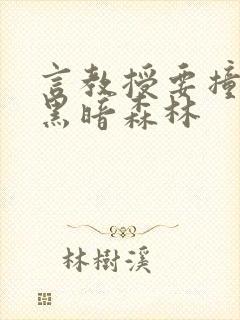 言教授要撞
黑暗森林
林樹溪